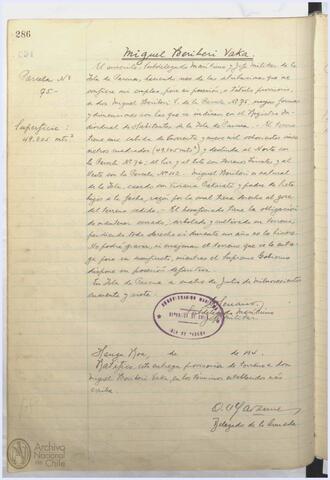 286
Miguel Beriberi Vaka.
Parcela Nº
95.-
Superficie:
49.025 mts²
El suscrito, Subdelegado Marítimo y Jefe Militar de la
Isla de Pascua, haciendo uso de las atribuciones que me
confiere mi empleo, pone en posesión, a título provisorio,
a don Miguel Beriberi V. de la Parcela Nº 95, cuya forma
y dimensiones son las que se indican en el Registro In-
dividual de Habitantes de la Isla de Pascua. - El terreno
tiene una cabida de cuarenta y nueve mil veinticinco
metros cuadrados (49.025 mts²) y deslinda al Norte con
la Parcela Nº 94; al Sur y al Este con Terrenos Fiscales y al
Oeste con la Parcela Nº 112. - Miguel Beriberi es natural
de la Isla, casado con Viviana Pakarati y padre de
hijos a la fecha, razón por la cual tiene derecho al goce
del terreno cedido. - El beneficiado tiene la obligación
de mantener cercado, arbolado y cultivado su terreno,
perdiendo todo derecho si durante un año no lo hiciere.
No podrá gravar, ni enajenar el terreno que se le entre-
ga por su manifiesto, mientras el Supremo Gobierno
dispone su posesión definitiva.
En Isla de Pascua a cuatro de Junio de mil novecientos
cuarenta y
Subdelegado Marítimo
y Jefe Militar
SUBDELEGACION MARITIMA
REPUBLICA DE CHILE
ISLA DE PASCUA
Hanga Roa, de de 194 .
Ratifico esta entrega provisoria de terreno a don
Miguel Beriberi Vaka, en los términos establecidos más
arriba.
Delegado de la Armada
Archivo
Nacional
de Chile